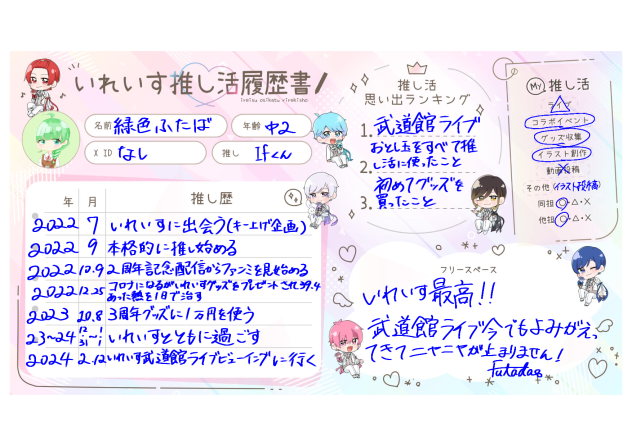 いれいす推し活履歴書
Ireisu oshikatsu rirekisho
名前 緑色ふたば
年齢 中2
X ID なし
推し Ifくん
推し活
思い出ランキング
1. 武道館ライブ
2. お年玉をすべて推し活に使ったこと
3. 初めてグッズを買ったこと
My 推し活
コラボイベント
グッズ収集
イラスト創作
動画投稿
その他(イラスト投稿)
同担 ○・△・×
他担 ○・△・×
年 月 推し歴
2022 7 いれいすに出会う(キー上げ企画)
2022 9 本格的に推し始める
2022 10.9 2周年記念配信からファンミを見始める
2022 12.25 コロナになるがいれいすグッズをプレゼントされ39.4
あった熱を1日で治す
2023 10.8 3周年グッズに1万円を使う
23~24 12/31~1/1 いれいすとともに過ごす
2024 2.12 いれいす武道館ライブビューイングに行く
フリースペース
いれいす最高!!
武道館ライブ今でもよみがえっ
てきてニヤニヤが止まりません!